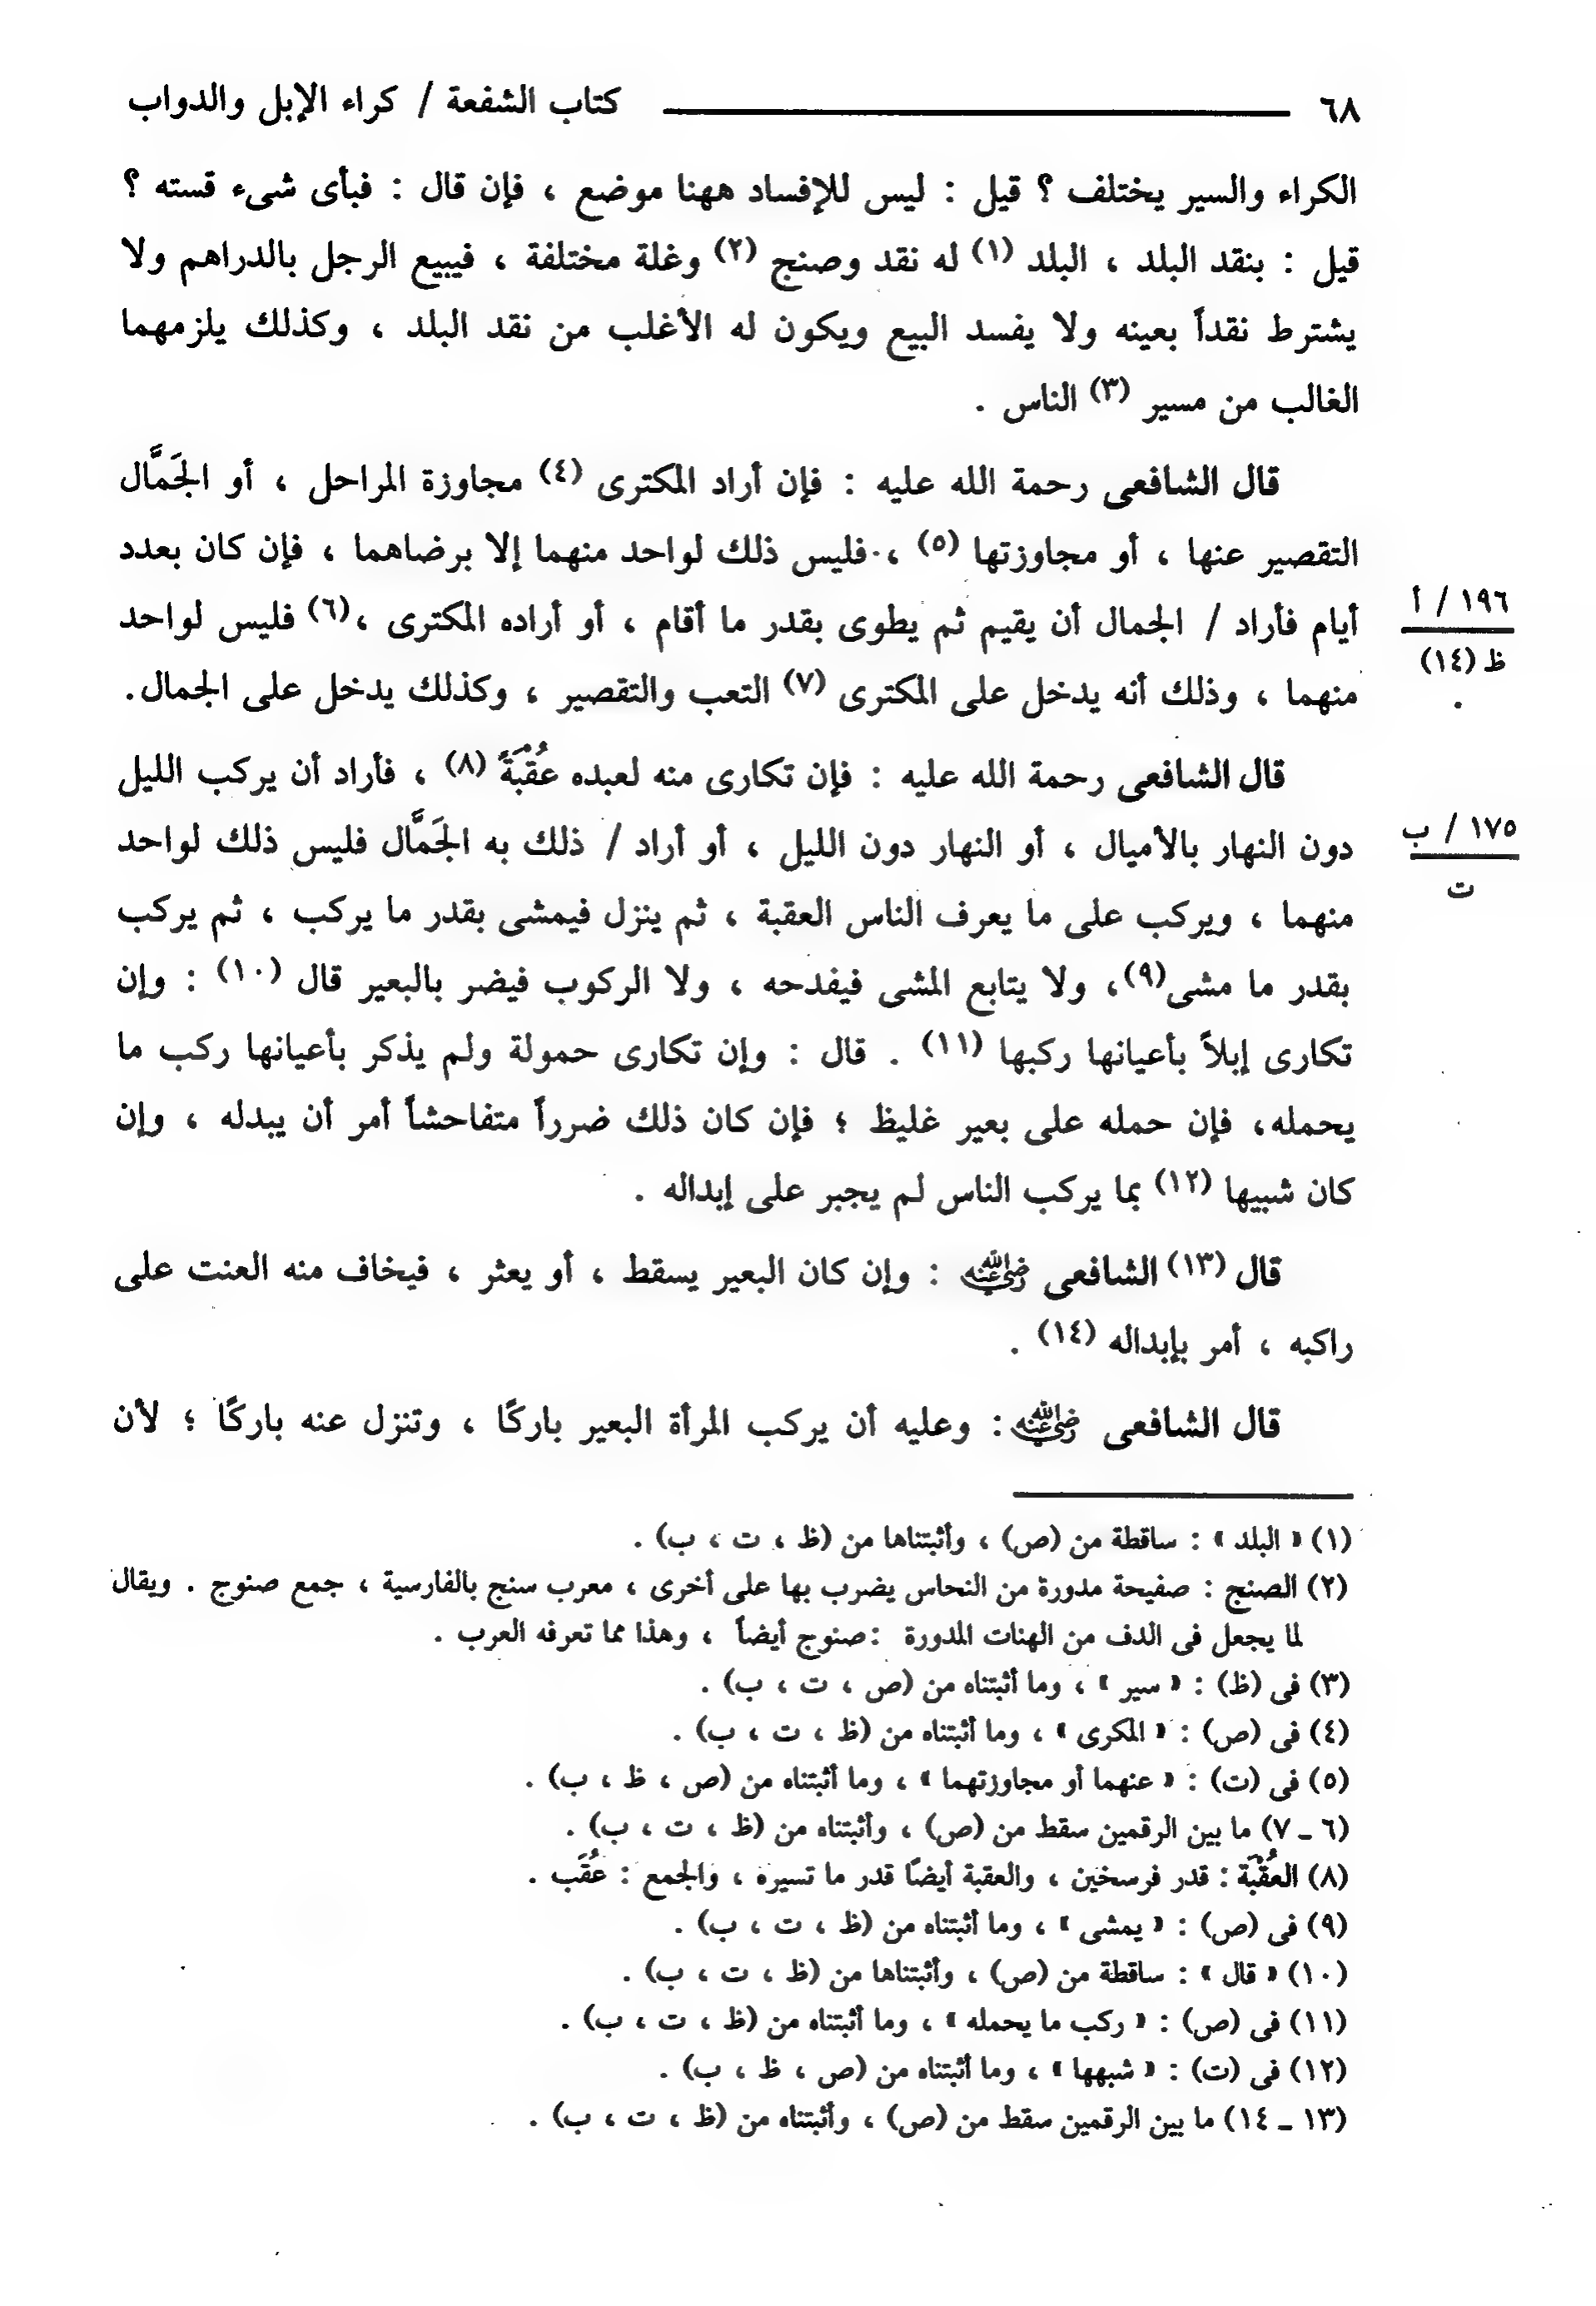 ٦٨ كتاب الشفعة / كراء الإبل والدواب
الكراء والسير يختلف ؟ قيل : ليس للإفساد ههنا موضع ، فإن قال : فبأى شىء قسته ؟
قيل : بنقد البلد ، البلد (١) له نقد وصنج (٢) وغلة مختلفة ، فيبيع الرجل بالدراهم ولا
يشترط نقداً بعينه ولا يفسد البيع ويكون له الأغلب من نقد البلد ، وكذلك يلزمهما
الغالب من مسير (٣) الناس .
قال الشافعى رحمة الله عليه : فإن أراد المكترى (٤) مجاوزة المراحل ، أو الجَمَّال
التقصير عنها ، أو مجاوزتها (٥) ، فليس ذلك لواحد منهما إلا برضاهما ، فإن كان بعدد
أيام فأراد / الجمال أن يقيم ثم يطوى بقدر ما أقام ، أو أراده المكترى ،(٦) فليس لواحد
١٩٦ / أ
ظ (١٤)
منهما ، وذلك أنه يدخل على المكترى (٧) التعب والتقصير ، وكذلك يدخل على الجمال.
قال الشافعى رحمة الله عليه : فإن تكارى منه لعبده عُقْبَةً (٨) ، فأراد أن يركب الليل
دون النهار بالأميال ، أو النهار دون الليل ، أو أراد / ذلك به الجَمَّال فليس ذلك لواحد
١٧٥ / ب
ت
منهما ، ويركب على ما يعرف الناس العقبة ، ثم ينزل فيمشى بقدر ما يركب ، ثم يركب
بقدر ما مشى(٩)، ولا يتابع المشى فيفدحه ، ولا الركوب فيضر بالبعير قال (١٠) : وإن
تكارى إبلاً بأعيانها ركبها (١١) . قال : وإن تكارى حمولة ولم يذكر بأعيانها ركب ما
يحمله، فإن حمله على بعير غليظ ؛ فإن كان ذلك ضرراً متفاحشاً أمر أن يبدله ، وإن
كان شبيها (١٢) بما يركب الناس لم يجبر على إبداله .
قال (١٣) الشافعى رضي الله عنه : وإن كان البعير يسقط ، أو يعثر ، فيخاف منه العنت على
راكبه ، أمر بإبداله (١٤) .
قال الشافعى رضي الله عنه : وعليه أن يركب المرأة البعير باركًا ، وتنزل عنه باركًا ؛ لأن
(١) « البلد » : ساقطة من (ص) ، وأثبتناها من (ظ ، ت ، ب) .
(٢) الصنج : صفيحة مدورة من النحاس يضرب بها على أخرى ، معرب سنج بالفارسية ، جمع صنوج . ويقال
لما يجعل فى الدف من الهنات المدورة : صنوج أيضاً ، وهذا مما تعرفه العرب .
(٣) فى (ظ) : « سير » ، وما أثبتناه من (ص ، ت ، ب) .
(٤) فى (ص) : « المكرى » ، وما أثبتناه من (ظ ، ت ، ب) .
(٥) فى (ت) : « عنهما أو مجاوزتهما » ، وما أثبتناه من (ص ، ظ ، ب) .
(٦ ـ ٧) ما بين الرقمين سقط من (ص) ، وأثبتناه من (ظ ، ت ، ب) .
(٨) العُقْبَة : قدر فرسخين ، والعقبة أيضًا قدر ما تسيره ، والجمع : عُقَب .
(٩) فى (ص) : « يمشى » ، وما أثبتناه من (ظ ، ت ، ب) .
(١٠) « قال » : ساقطة من (ص) ، وأثبتناها من (ظ ، ت ، ب) .
(١١) فى (ص) : « ركب ما يحمله » ، وما أثبتناه من (ظ ، ت ، ب) .
(١٢) فى (ت) : « شبهها » ، وما أثبتناه من (ص ، ظ ، ب) .
(١٣ ـ ١٤) ما بين الرقمين سقط من (ص) ، وأثبتناه من (ظ ، ت ، ب) .